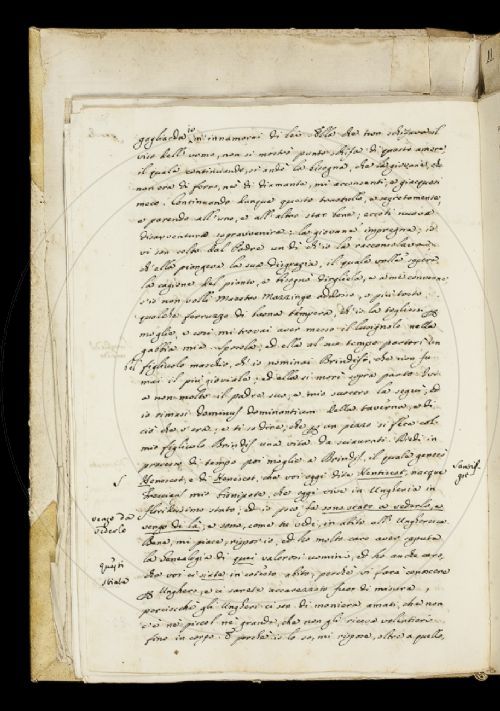 gagliarda io m'innamorai di lei. Ella che non schizava il
viso dell'uomo, non si mostrò punto schifa di questo amore
il quale continuando, si andò la bisogna, che la giovane, che
non era di ferro, ne di diamante, mi acconsentì, e giacquesi
meco. Continuando dunque questo trastullo, e segretamente,
e parendo all'uno, e all'altro star bene; eccoti nuova
disavventura sopravvenire; la giovane impregna; io
vi son colto dal Padre un dì ch'io la racconsolava
ch'ella piangeva la sua disgrazia, il quale volle sapere
la cagione del pianto, e bisognò dirgliela, e a me convenne
s'io non volli Maestro Marzingo addosso, o più tosto
qualche ferruzzo di buona tempera, ch'io la togliessi per
moglie, e così mi trovai aver messo il lusignolo nella
gabbia mia. Sposola; ed ella al suo tempo partorì un
figliuolo maschio, ch'io nominai Brindisi, che non fu
mai il più gioviale; ed ella si morì sopra parto
e non molto il padre suo, e mio suocero la seguì; ed
io rimasi dominus dominantium della taverna, e di
ciò che v'era; e ti so dire, che per un pezzo si fece col
mio figliuolo Brindisi una vita da sciaurati. Diedi in
processo di tempo poi moglie a Brindisi, il quale generò
Henocot; e di Henocot, che voi oggi dite Hentricot, nacque
mio trinipote, che oggi vive in Ungheria in
floridissimo stato, ed io però fu sono stato a vederlo, e
vengo di là; e sono, come tu vedi, in abito all'Ungheresca.
Bene, mi piace, risposi io, ed ho molto caro aver saputa
la Genealogia di quai valorosi uomini, ed ho anche caro,
che voi ci siate in cotesto abito, perchè vi farà conoscere
per Unghero, e ci sarete accarezzato fuor di misura,
perciocchè gli Ungheri ci son di maniera amati, che non
c'è ne piccol ne grande, che non gli riceva volentieri
fino in corpo. E perchè io lo so, mi rispose, oltre a quello,
vengo da
vederlo
questi